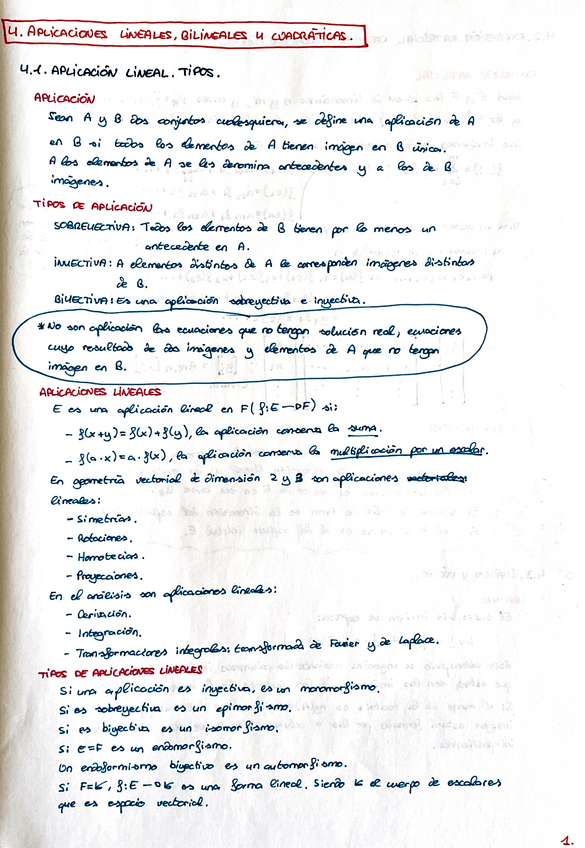 4. APLICACIONES LINEALES, BILINEALES Y CUADRÁTICAS.
4.1. APLICACIÓN LINEAL. TIPOS.
APLICACIÓN
Sean A y B dos conjuntos cualesquiera, se define una aplicación de A
en B si todos los elementos de A tienen imágen en B única.
A los elementos de A se les denomina antecedentes y a los de B
imágenes.
TIPOS DE APLICACIÓN
SOBREYECTIVA: Todos los elementos de B tienen por lo menos un
antecedente en A.
INYECTIVA: A elementos distintos de A le corresponden imágenes distintas
de B.
BIYECTIVA: Es una aplicación sobreyectiva e inyectiva.
* No son aplicación las ecuaciones que no tengan solución real, ecuaciones
cuyo resultado de dos imágenes y elementos de A que no tengan
imágen en B.
APLICACIONES LINEALES
E es una aplicación lineal en F (f: E → F) si:
- f(x+y) = f(x) + f(y), la aplicación conserva la suma.
- f(a·x) = a·f(x), la aplicación conserva la multiplicación por un escalar.
En geometría vectorial de dimensión 2 y 3 son aplicaciones
lineales:
- Simetrías.
- Rotaciones.
- Homotecias.
- Proyecciones.
En el análisis son aplicaciones lineales:
- Derivación.
- Integración.
- Transformaciones integrales: transformada de Fourier y de Laplace.
TIPOS DE APLICACIONES LINEALES
Si una aplicación es inyectiva, es un monomorfismo.
Si es sobreyectiva es un epimorfismo.
Si es biyectiva es un isomorfismo.
Si E=F es un endomorfismo.
Un endomorfismo biyectivo es un automorfismo.
Si F=K, f: E → K es una forma lineal. Siendo K el cuerpo de escalares
que es espacio vectorial.
1.